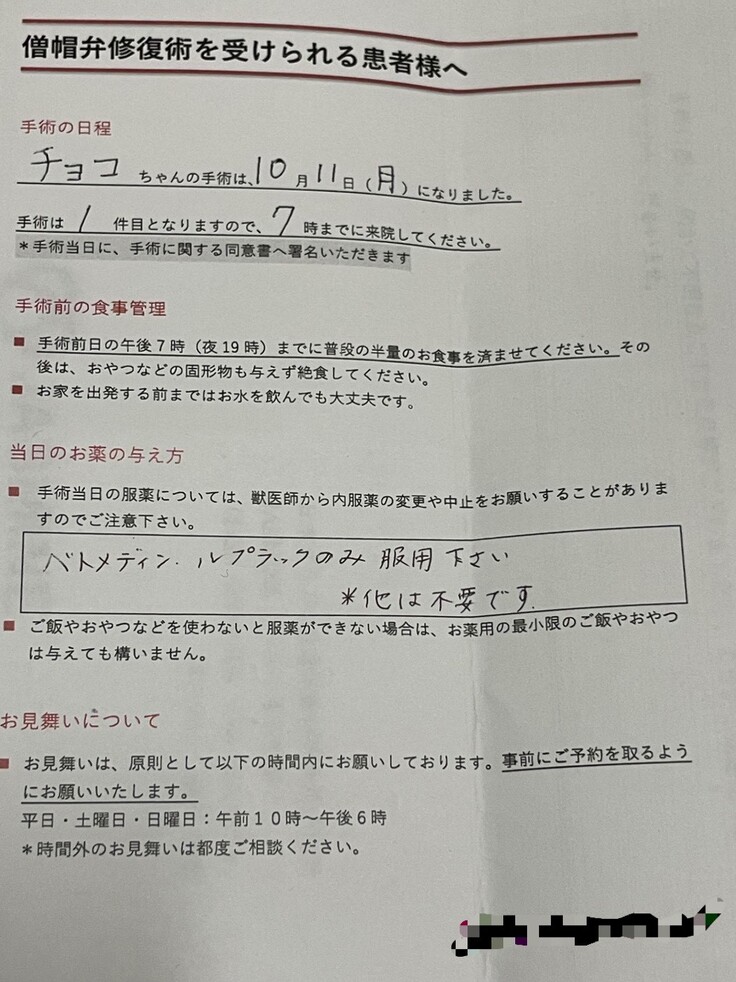 僧帽弁修復術を受けられる患者様へ
手術の日程
チョコ ちゃんの手術は、10月11日(月)になりました。
手術は 1 件目となりますので、7 時までに来院してください。
*手術当日に、手術に関する同意書へ署名いただきます
手術前の食事管理
■ 手術前日の午後7時(夜19時)までに普段の半量のお食事を済ませてください。その
後は、おやつなどの固形物も与えず絶食してください。
■ お家を出発する前まではお水を飲んでも大丈夫です。
当日のお薬の与え方
■ 手術当日の服薬については、獣医師から内服薬の変更や中止をお願いすることがありま
すのでご注意下さい。
ベトメディン・ルプラックのみ 服用下さい
*他は不要です.
■ ご飯やおやつなどを使わないと服薬ができない場合は、お薬用の最小限のご飯やおやつ
は与えても構いません。
お見舞いについて
■ お見舞いは、原則として以下の時間内にお願いしております。事前にご予約を取るよう
にお願いいたします。
平日・土曜日・日曜日:午前10時~午後6時
*時間外のお見舞いは都度ご相談ください。